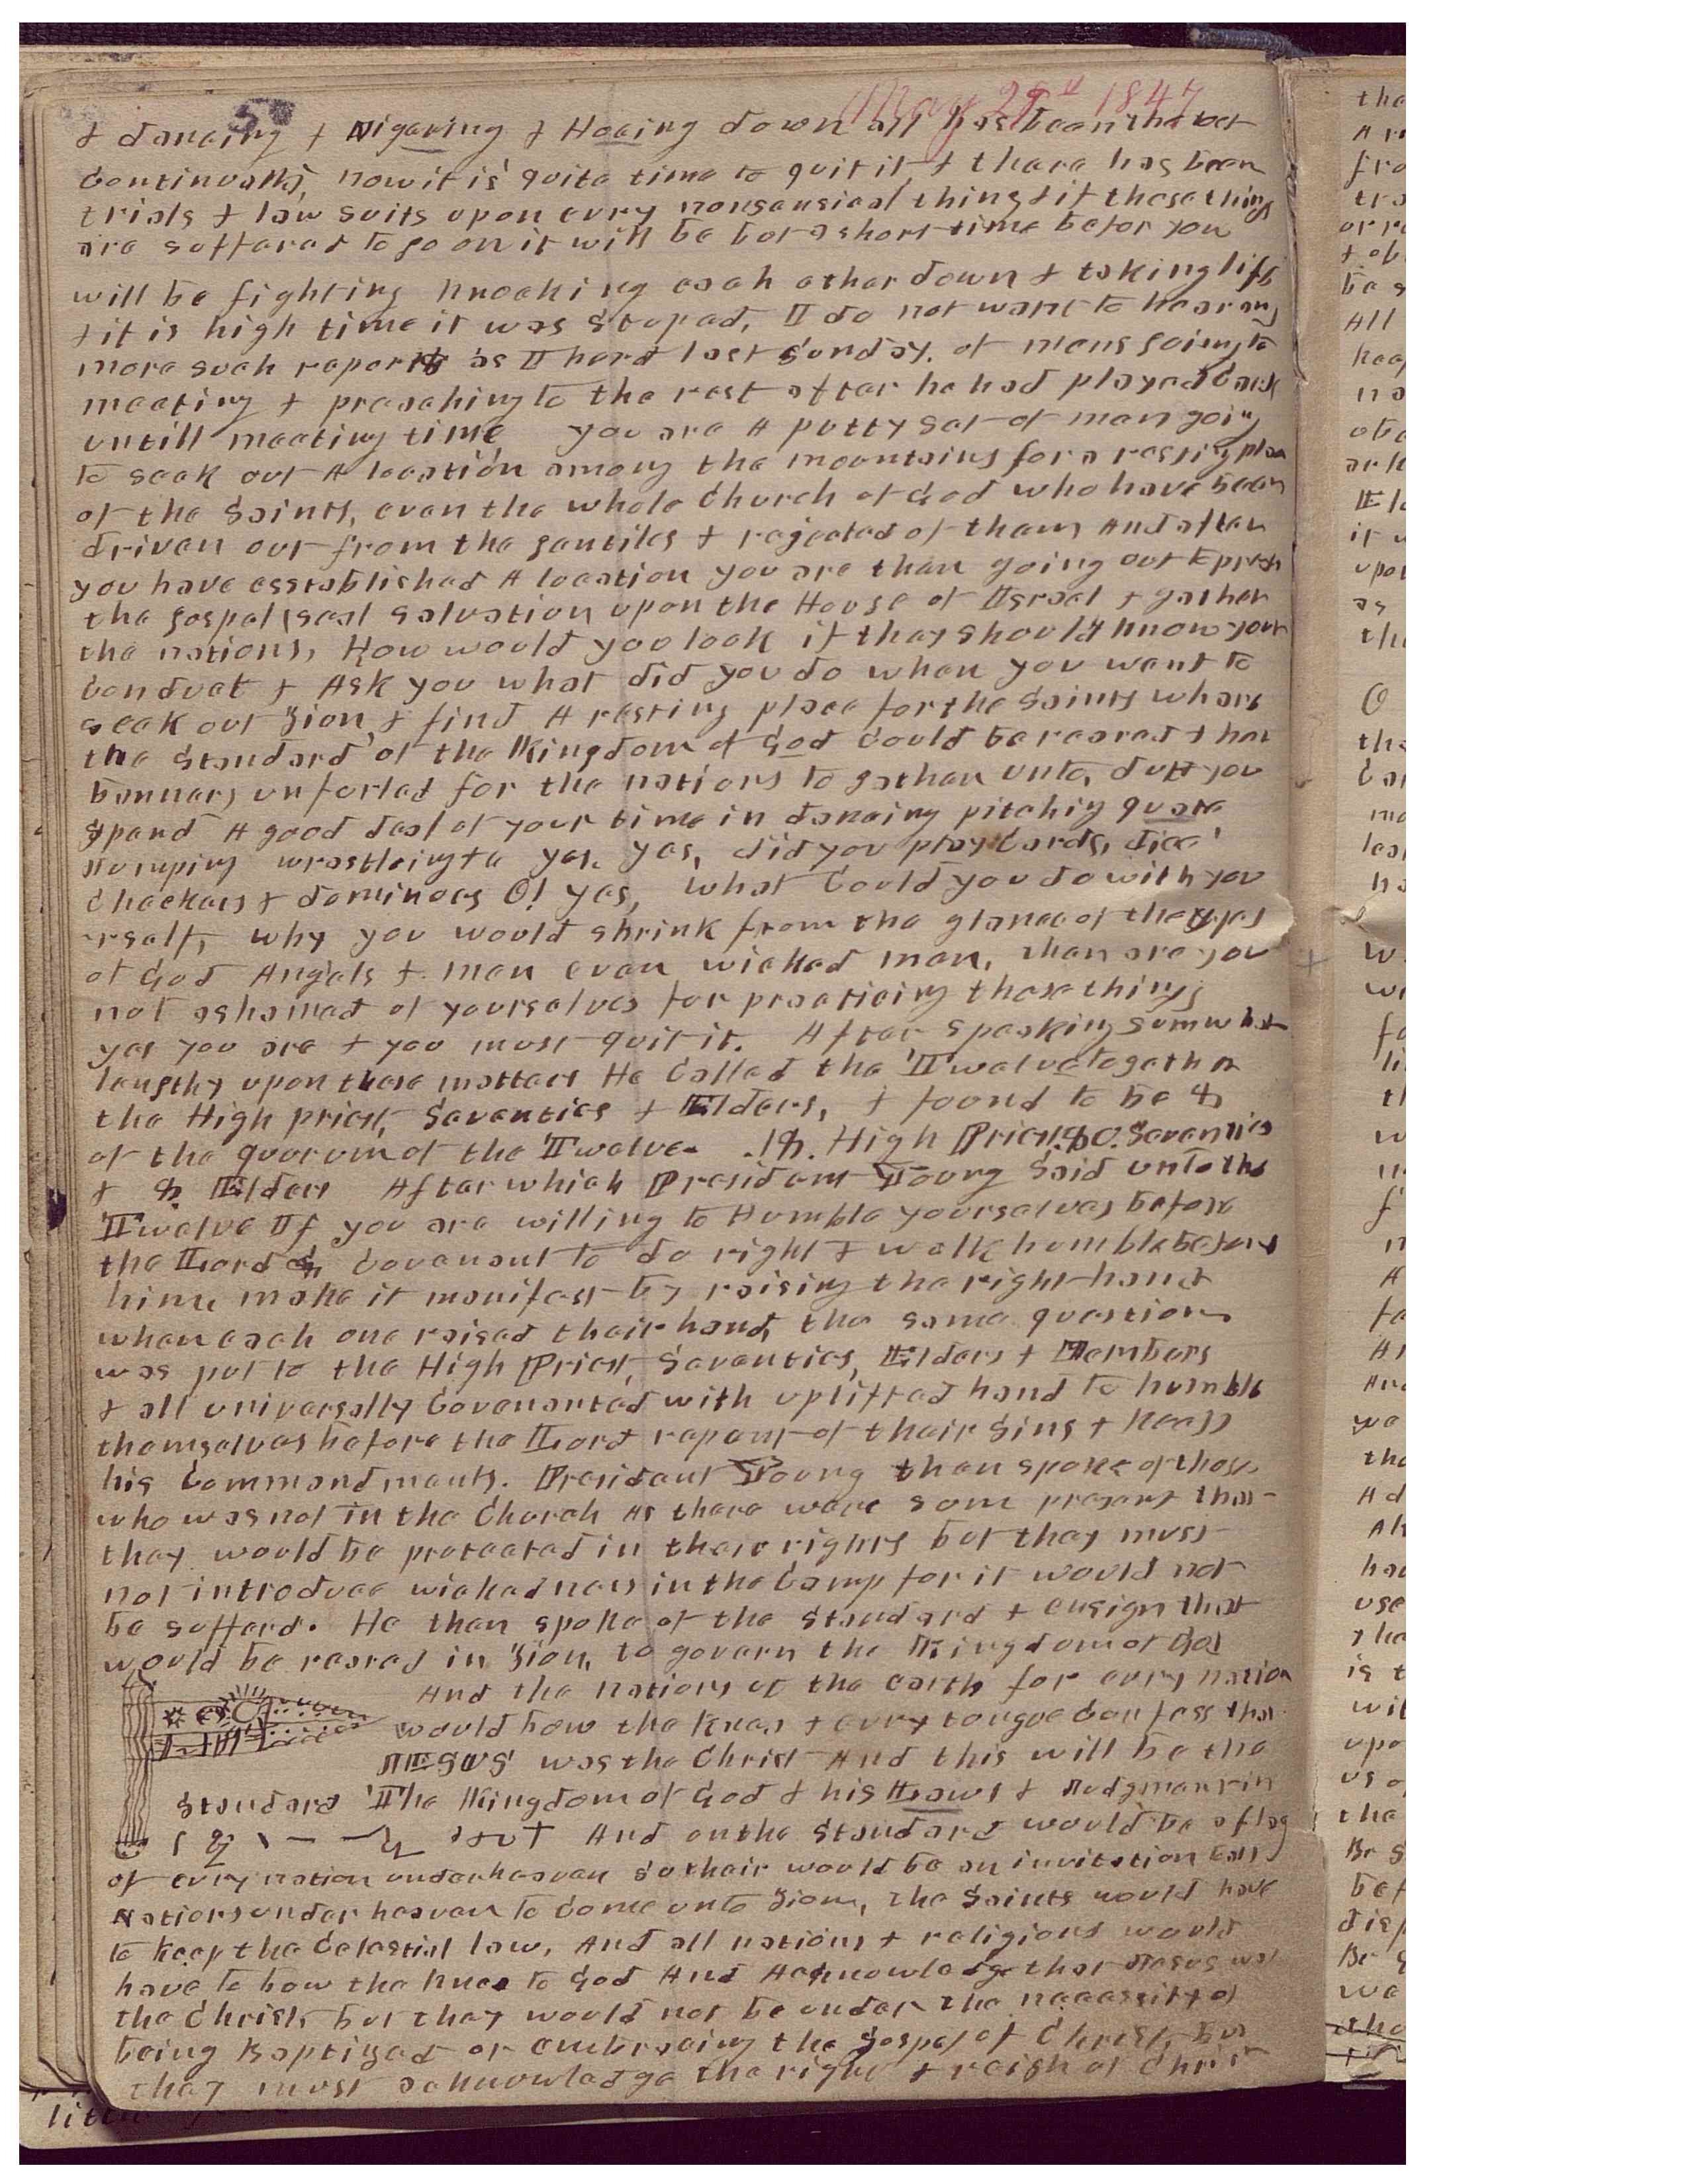 May 29th 1847
& dancing & Nigering & Hoeing down all has been the act
Continually, now it is quite time to quit it & there has been
trials & law suits upon evry nonsensical thing & if these things
are suffered to go on it will be but a short time befor you
will be fighting knocking each other down & taking life
& it is high time it was stoped, I do not want to hear any
more such reports as I herd last Sunday. of mens going to
meeting & preaching to the rest after he had played Cards
untill meeting time you are A putty set of men going
to seek out A location among the mountains for a resting place
of the Saints, even the whole Church of God who have been
driven out from the gentiles & rejected of them And after
you have esstablished A location you are then going out to preach
the gospel seal salvation upon the House of Israel & gather
the nations, How would you look if they should know your
Conduct & Ask you what did you do when you went to
seek out Zion, & find A resting place for the Saints whare
the Standard of the Kingdom of God Could be reared & her
banners unforled for the nations to gather unto, did you
spend A good deal of your time in dancing pitching quate
Jumping wrestleing &c yes. yes, did you play Cards, dice
Checkers & dominoes O! yes, what Could you do with you
rself, why you would shrink from the glance of the eyes
of God Angels & men even wicked men, then are you
not ashamed of yourselves for practicing these things
yes you are & you must quit it. After speaking somwhat
lengthy upon these matters He Called the Twelve together
the High priest, Seventies & Elders, & found to be 8
of the quorum of the Twelve. 18. High Priest. 80. Seventies
& 8 Elders After which President Young Said unto the
Twelve If you are willing to Humble yourselves before
the Lord & Covenant to do right & walk humble before
him make it manifest by raising the right hand
when each one raised their hand, the same question
was put to the High Priest, Seventies, Elders & Members
& all universally Covenanted with uplifted hand to humble
themselves before the Lord repent of their Sins & keep
his Commandments. President Young then spoke of those
who was not in the Church as there were some present that
they would be protected in there rights but they must
not introduce wickedness in the Camp for it would not
be sufferd. He then spoke of the standard & ensign that
would be reared in Zion, to govern the Kingdom of God
And the nations of the earth for evry nation
would bow the knee & evry tongue Confess that
JESUS was the Christ And this will be the
Standard The Kingdom of God & his Laws & Judgments in
And on the Standard would be a flag
of evry nation under heaven so their would be an invitation to all
Nations under heaven to Come unto Zion, the Saints would have
to keep the Celestial law, And all nations & religions would
have to bow the knee to God And Acknowledge that Jesus was
the Christ, but they would not be under the necessity of
being Baptized or embracing the gospel of Christ, but
they must acknowledge the right & reign of Christ